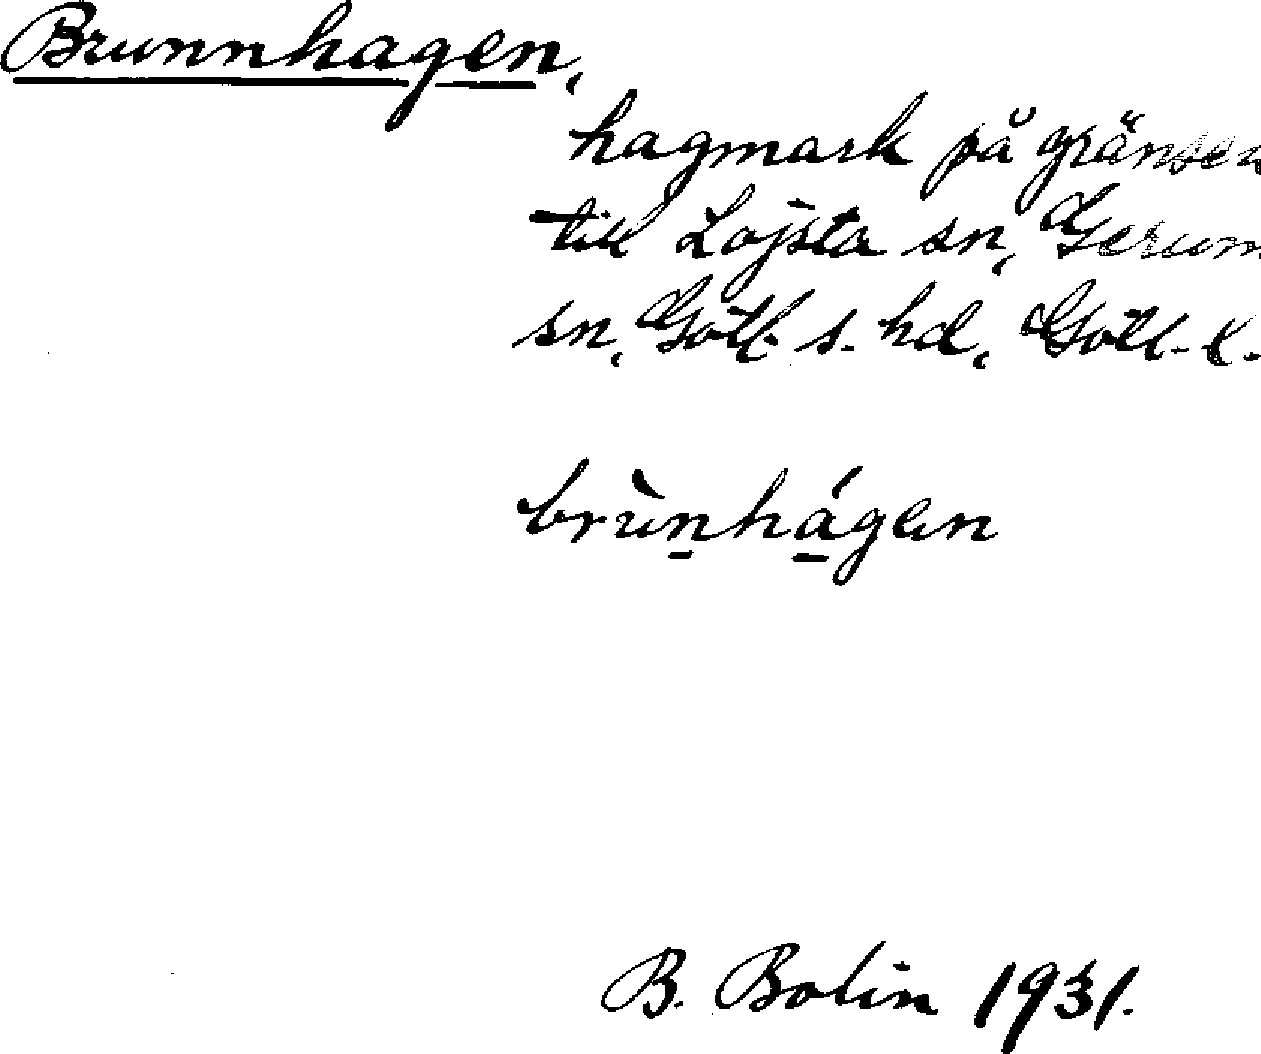 Brunnhagen,
hagmark på gränsen
till Lojsta sn, Gerum
sn, Gotl. s. hd, Gotl. l.
brùn̲há̲gen
B. Bolin 1931.